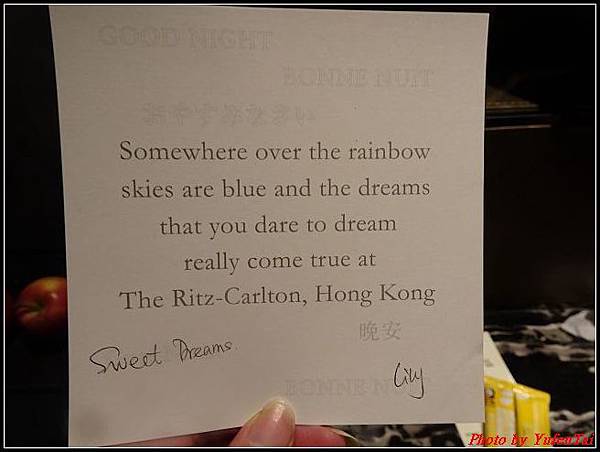 GOOD NIGHT
BONNE NUIT
おやすみなさい
Somewhere over the rainbow
skies are blue and the dreams
that you dare to dream
really come true at
The Ritz-Carlton, Hong Kong
晚安
Sweet Dreams
Lily
BONNE
Photo by